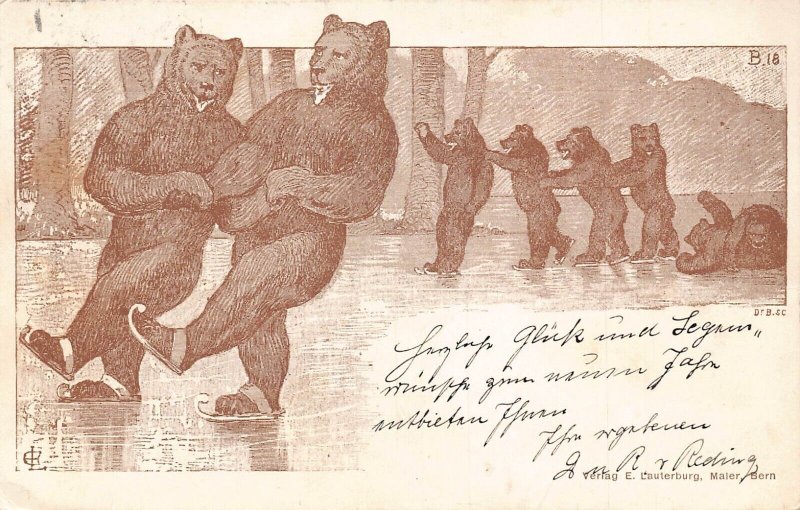 B. 18
Dr B. sc
Herzliche Glück und Segens„
wünsche zum neuen Jahre
entbieten Ihnen
Ihre ergebenen
R. v Reding
Verlag E. Lauterburg, Maler, Bern